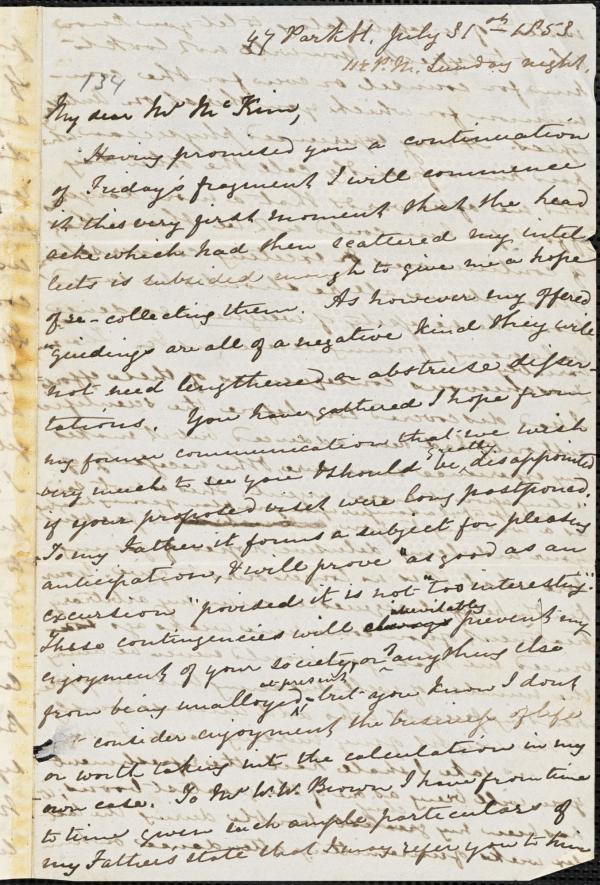 47 Park St. July 31st 1853
11 P.M. Sunday night.
134
My dear Mr McKim,
Having promised you a continuation
of Friday's fragment I will commence
it this very first moment that the head
ache which had then scattered my intel-
lects is subsided enough to give me a hope
of re-collecting them. As however my offered
"guidings are all of a negative kind they will
not need lengthened or abstruse disser-
tations. You have gathered I hope from
my former communication that we wish
very much to see you & should be, greatly disappointed
if your proposed visit were long postponed.
To my Father it forms a subject for pleasing
anticipation, & will prove "as good as an
excursion "povised it is not "too interesting."
These contingencies will inevitably prevent my
enjoyment of your society, or anything else
from being unalloyed at present, but you know I dont
consider enjoyment the business of life
or worth taking into the calculation in my
own case. To Mr W.W. Brown I have from time
to time given such ample particulars of
my Fathers state that I may refer you to him